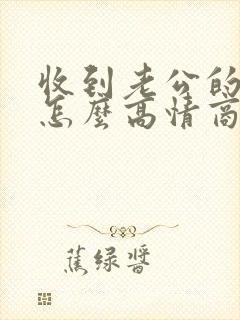 收到老公的
怎麼高情商
蕉绿醬